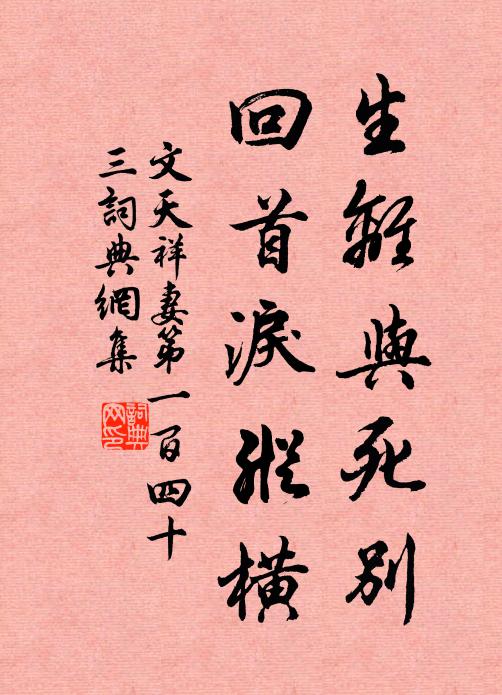 生離與死別
回首淚縱橫
文天祥妻第一百四十
三詞典網集
詞典
网印